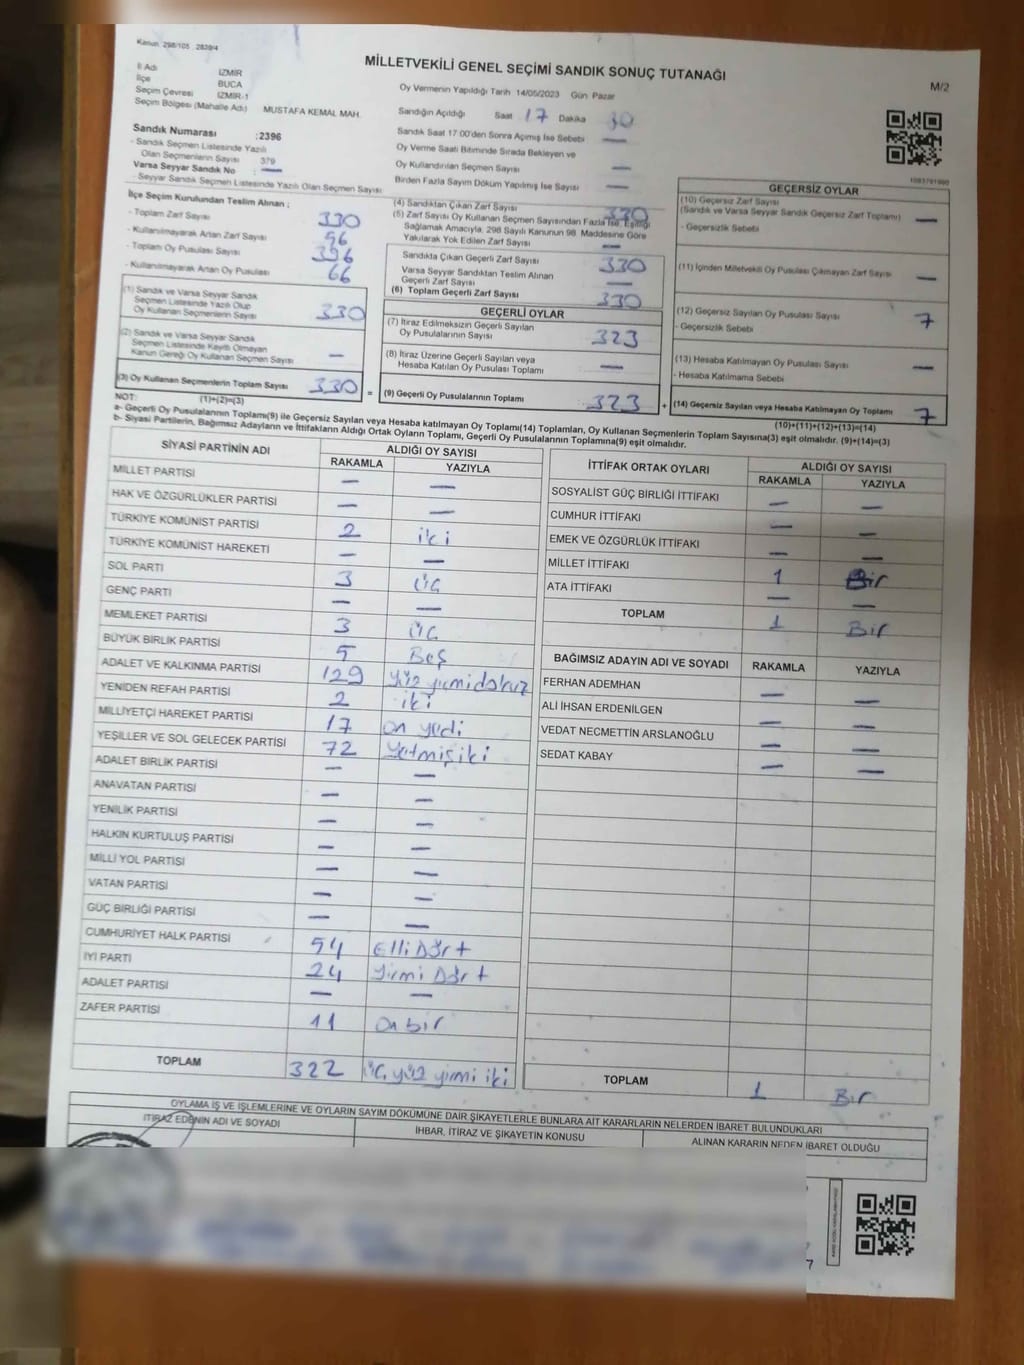 Kanun 298/105 2839/4
MİLLETVEKİLİ GENEL SEÇİMİ SANDIK SONUÇ TUTANAĞI
M/2
İl Adı İZMİR
İlçe BUCA
Seçim Çevresi İZMİR-1
Seçim Bölgesi (Mahalle Adı) MUSTAFA KEMAL MAH.
Oy Vermenin Yapıldığı Tarih 14/05/2023 Gün Pazar
Sandığın Açıldığı Saat 17 Dakika 30
Sandık Saat 17:00'den Sonra Açımış İse Sebebi —
Oy Verme Saati Bitiminde Sırada Bekleyen ve
Oy Kullandırılan Seçmen Sayısı —
Birden Fazla Sayım Döküm Yapılmış İse Sayısı —
Sandık Numarası :2396
- Sandık Seçmen Listesinde Yazılı
Olan Seçmenlerin Sayısı 379
Varsa Seyyar Sandık No : —
- Seyyar Sandık Seçmen Listesinde Yazılı Olan Seçmen Sayısı
İlçe Seçim Kurulundan Teslim Alınan ;
- Toplam Zarf Sayısı 330
- Kullanılmayarak Artan Zarf Sayısı
- Toplam Oy Pusulası Sayısı 396
- Kullanılmayarak Artan Oy Pusulası 66
(1) Sandık ve Varsa Seyyar Sandık
Seçmen Listesinde Yazılı Olup
Oy Kullanan Seçmenlerin Sayısı 330
(2) Sandık ve Varsa Seyyar Sandık
Seçmen Listesinde Kayıtlı Olmayan
Kanun Gereği Oy Kullanan Seçmen Sayısı —
(3) Oy Kullanan Seçmenlerin Toplam Sayısı 330 =
(1)+(2)=(3)
(4) Sandıktan Çıkan Zarf Sayısı 330
(5) Zarf Sayısı Oy Kullanan Seçmen Sayısından Fazla İse, Eşitliği
Sağlamak Amacıyla, 298 Sayılı Kanunun 98. Maddesine Göre
Yakılarak Yok Edilen Zarf Sayısı —
Sandıkta Çıkan Geçerli Zarf Sayısı 330
Varsa Seyyar Sandıktan Teslim Alınan
Geçerli Zarf Sayısı —
(6) Toplam Geçerli Zarf Sayısı 330
GEÇERLİ OYLAR
(7) İtiraz Edilmeksizin Geçerli Sayılan
Oy Pusulalarının Sayısı 323
(8) İtiraz Üzerine Geçerli Sayılan veya
Hesaba Katılan Oy Pusulası Toplamı —
(9) Geçerli Oy Pusulalarının Toplamı 323 +
GEÇERSİZ OYLAR
(10) Geçersiz Zarf Sayısı
(Sandık ve Varsa Seyyar Sandık Geçersiz Zarf Toplamı) —
- Geçersizlik Sebebi
(11) İçinden Milletvekili Oy Pusulası Çıkmayan Zarf Sayısı —
(12) Geçersiz Sayılan Oy Pusulası Sayısı 7
- Geçersizlik Sebebi
(13) Hesaba Katılmayan Oy Pusulası Sayısı —
- Hesaba Katılmama Sebebi
(14) Geçersiz Sayılan veya Hesaba Katılmayan Oy Toplamı 7
(10)+(11)+(12)+(13)=(14)
NOT:
a- Geçerli Oy Pusulalarının Toplamı(9) ile Geçersiz Sayılan veya Hesaba katılmayan Oy Toplamı(14) Toplamları, Oy Kullanan Seçmenlerin Toplam Sayısına(3) eşit olmalıdır. (9)+(14)=(3)
b- Siyasi Partilerin, Bağımsız Adayların ve İttifakların Aldığı Ortak Oyların Toplamı, Geçerli Oy Pusulalarının Toplamına(9) eşit olmalıdır.
SİYASİ PARTİNİN ADI ALDIĞI OY SAYISI
RAKAMLA YAZIYLA
MİLLET PARTİSİ — —
HAK VE ÖZGÜRLÜKLER PARTİSİ — —
TÜRKİYE KOMÜNİST PARTİSİ 2 iki
TÜRKİYE KOMÜNİST HAREKETİ — —
SOL PARTİ 3 üç
GENÇ PARTİ — —
MEMLEKET PARTİSİ 3 üç
BÜYÜK BİRLİK PARTİSİ 5 Beş
ADALET VE KALKINMA PARTİSİ 129 yüz yirmidokuz
YENİDEN REFAH PARTİSİ 2 iki
MİLLİYETÇİ HAREKET PARTİSİ 17 on yedi
YEŞİLLER VE SOL GELECEK PARTİSİ 72 yetmişiki
ADALET BİRLİK PARTİSİ — —
ANAVATAN PARTİSİ — —
YENİLİK PARTİSİ — —
HALKIN KURTULUŞ PARTİSİ — —
MİLLİ YOL PARTİSİ — —
VATAN PARTİSİ — —
GÜÇ BİRLİĞİ PARTİSİ — —
CUMHURİYET HALK PARTİSİ 54 Elli Dört
İYİ PARTİ 24 yirmi Dört
ADALET PARTİSİ — —
ZAFER PARTİSİ 11 on bir
TOPLAM 322 üç yüz yirmi iki
İTTİFAK ORTAK OYLARI ALDIĞI OY SAYISI
RAKAMLA YAZIYLA
SOSYALİST GÜÇ BİRLİĞİ İTTİFAKI — —
CUMHUR İTTİFAKI — —
EMEK VE ÖZGÜRLÜK İTTİFAKI — —
MİLLET İTTİFAKI 1 Bir
ATA İTTİFAKI — —
TOPLAM 1 Bir
BAĞIMSIZ ADAYIN ADI VE SOYADI RAKAMLA YAZIYLA
FERHAN ADEMHAN — —
ALİ İHSAN ERDENİLGEN — —
VEDAT NECMETTİN ARSLANOĞLU — —
SEDAT KABAY — —
TOPLAM 1 Bir
OYLAMA İŞ VE İŞLEMLERİNE VE OYLARIN SAYIM DÖKÜMÜNE DAİR ŞİKAYETLERLE BUNLARA AİT KARARLARIN NELERDEN İBARET BULUNDUKLARI
İTİRAZ EDENİN ADI VE SOYADI İHBAR, İTİRAZ VE ŞİKAYETİN KONUSU ALINAN KARARIN NEDEN İBARET OLDUĞU
7